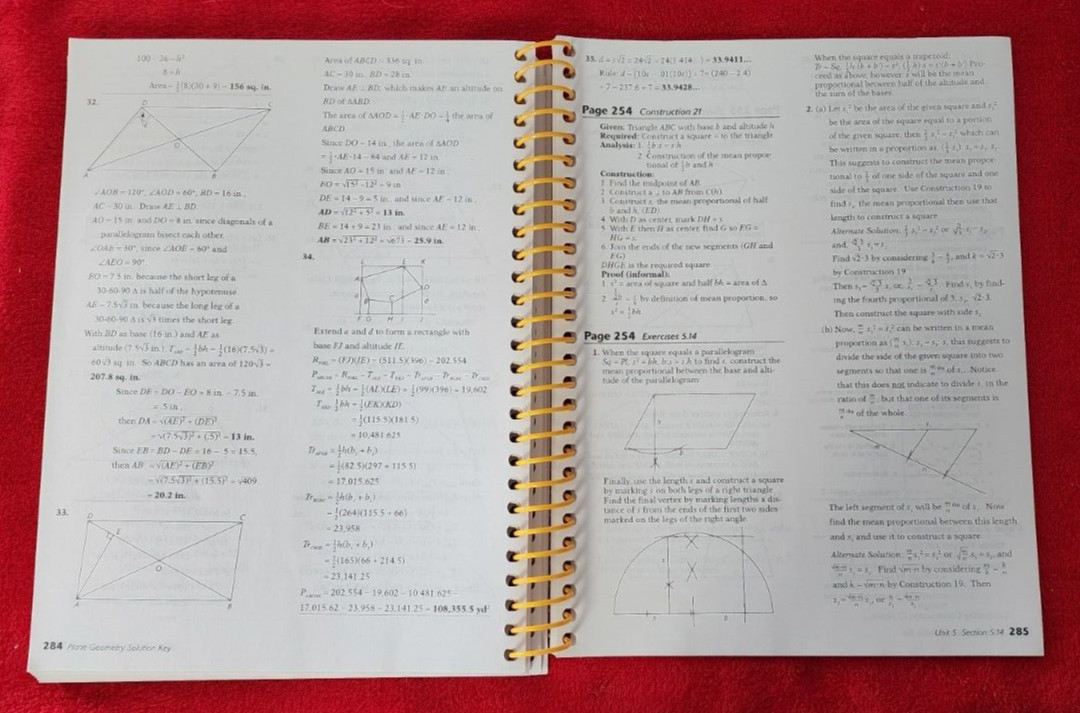 Area = ½(8)(30 + 9) = 156 sq. in.
32.
∠AOB = 120°, ∠AOD = 60°, BD = 16 in.,
AC = 30 in. Draw AE ⊥ BD.
AO = 15 in. and DO = 8 in. since diagonals of a
parallelogram bisect each other.
∠OAE = 30°, since ∠AOE = 60° and
∠AEO = 90°
EO = 7.5 in. because the short leg of a
30-60-90 Δ is half of the hypotenuse.
AE = 7.5√3 in. because the long leg of a
30-60-90 Δ is √3 times the short leg.
With BD as base (16 in.) and AE as
altitude (7.5√3 in.), = ½bh = ½(16)(7.5√3) =
60√3 sq. in. So ABCD has an area of 120√3 =
207.8 sq. in.
Since DE = DO - EO = 8 in. - 7.5 in.
= .5 in.,
then DA = √(AE)² + (DE)²
= √(7.5√3)² + (.5)² = 13 in.
Since EB = BD - DE = 16 - .5 = 15.5,
then AB = √(AE)² + (EB)²
= √(7.5√3)² + (15.5)² = √409
= 20.2 in.
33.
D C
E
O
A B
284 Plane Geometry Solution Key
Area of ABCD = 336 sq. in.
AC = 30 in., BD = 28 in.
Draw AE ⊥ BD, which makes AE an altitude on
BD of ΔABD.
The area of ΔAOD = ½ · AE · DO = ¼ the area of
ABCD.
Since DO = 14 in., the area of ΔAOD
= ½ · AE · 14 = 84 and AE = 12 in.
Since AO = 15 in. and AE = 12 in.
EO = √15² - 12² = 9 in.
DE = 14 - 9 = 5 in. and since AE = 12 in.,
AD = √12² + 5² = 13 in.
BE = 14 + 9 = 23 in. and since AE = 12 in.,
AB = √23² + 12² = √673 = 25.9 in.
34.
Extend a and d to form a rectangle with
base FJ and altitude JE.
= (FJ)(JE) = (511.5)(396) = 202.554
= ½bh = ½(AL)(LE) = ½(99)(396) = 19,602
½bh = ½(EK)(KD)
= ½(115.5)(181.5)
= 10,481.625
= ½h(b₁ + b₂)
= ½(82.5)(297 + 115.5)
= 17,015.625
= ½h(b₁ + b₂)
= ½(264)(115.5 + 66)
= 23,958
= ½h(b₁ + b₂)
= ½(165)(66 + 214.5)
= 23,141.25
= 202.554 - 19,602 - 10,481.625 -
17,015.62 - 23,958 - 23,141.25 = 108,355.5 yd²
35. d = s√2 = 24√2 = 24(1.414...) = 33.9411...
Rule: d = [10s - .01(10s)] ÷ 7 = (240 - 2.4)
÷ 7 = 237.6 ÷ 7 = 33.9428...
Page 254 Construction 21
Given: Triangle ABC with base b and altitude h
Required: Construct a square = to the triangle
Analysis: 1. ½b:s = s:h
2. Construction of the mean propor-
tional of ½b and h
Construction:
1. Find the midpoint of AB.
2. Construct a ⊥ to AB from C(h).
3. Construct s, the mean proportional of half
b and h, (ED).
4. With D as center, mark DH = s.
5. With E then H as center, find G so EG =
HG = s.
6. Join the ends of the new segments (GH and
EG)
DHGE is the required square.
Proof (informal):
1. s² = area of square and half bh = area of Δ.
by definition of mean proportion, so
s² = ½bh
Page 254 Exercises 5.14
1. When the square equals a parallelogram
Sq = Pl, s² = bh, b:s = s:h to find s, construct the
mean proportional between the base and alti-
tude of the parallelogram.
Finally, use the length s and construct a square
by marking s on both legs of a right triangle.
Find the final vertex by marking lengths a dis-
tance of s from the ends of the first two sides
marked on the legs of the right angle.
When the square equals a trapezoid:
Pro-
ceed as above; however, s will be the mean
proportional between half of the altitude and
the sum of the bases.
2. (a) Let s₁² be the area of the given square and s₂²
be the area of the square equal to a portion
of the given square, then which can
be written in a proportion as
This suggests to construct the mean propor-
tional to of one side of the square and one
side of the square. Use Construction 19 to
find s₂, the mean proportional then use that
length to construct a square.
Alternate Solution:
and,
Find √2·3 by considering and k = √2·3
by Construction 19.
Then Find s₂ by find-
ing the fourth proportional of 3, s₁, √2·3.
Then construct the square with side s₂.
(b) Now, can be written in a mean
proportion as this suggests to
divide the side of the given square into two
segments so that one is of s₁. Notice
that this does not indicate to divide s₁ in the
ratio of but that one of its segments is
of the whole.
The left segment of s₁ will be of s₁. Now
find the mean proportional between this length
and s₁ and use it to construct a square.
Alternate Solution: and
Find √m·n by considering
and k = √m·n by Construction 19. Then
Unit 5 - Section 5.14 285